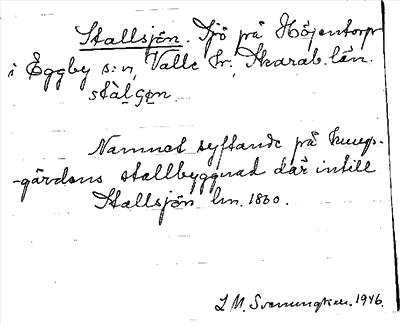 Stallsjön. Sjö på Höjentorp
i Eggby s:n, Valle hr, Skarab. län.
stàlʃön
Namnet syftande på kungs-
-gårdens stallbyggnad där intill
Stallsjön hn. 1860.
1946.